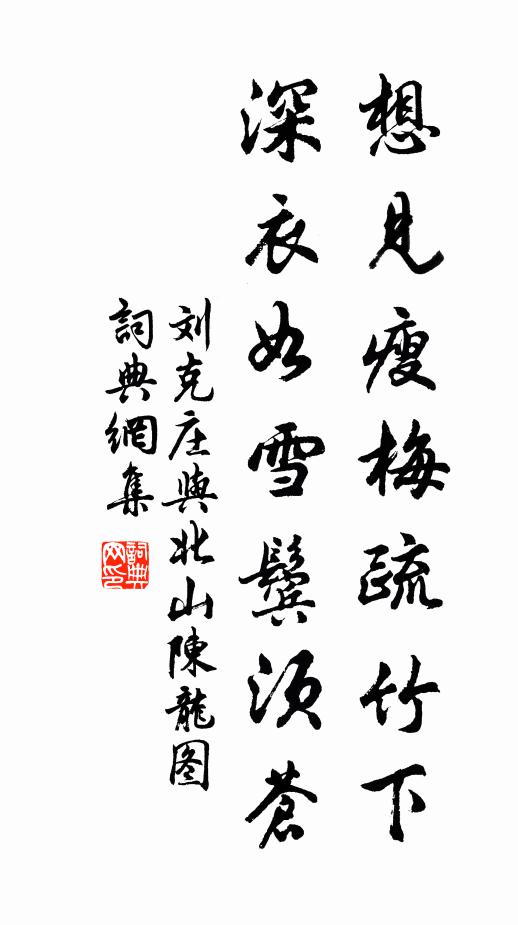 想見瘦梅疏竹下
深衣如雪鬓须蒼
刘克庄與北山陳龍图
詞典網集
詞典网印